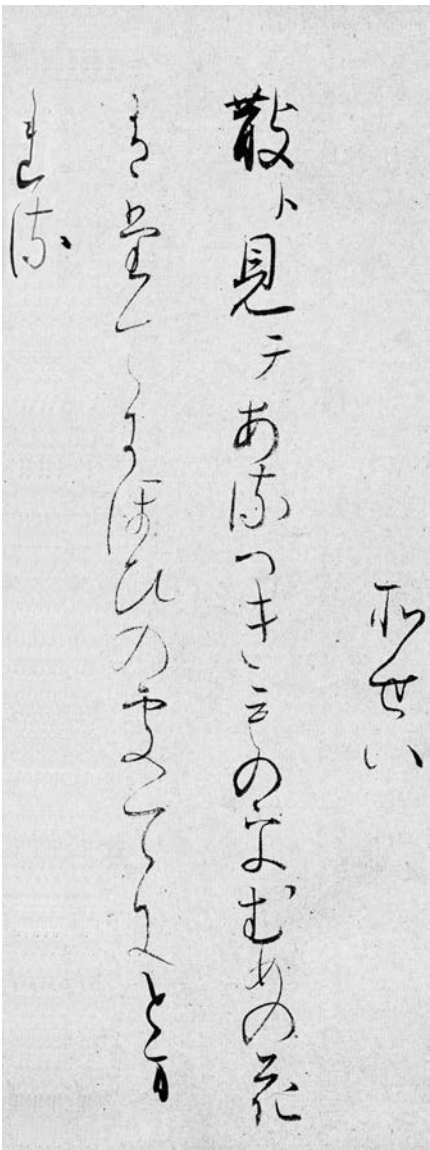 そせい
散ト見テあるへきものをむめの花
うたてにほひのそてにとま
れる